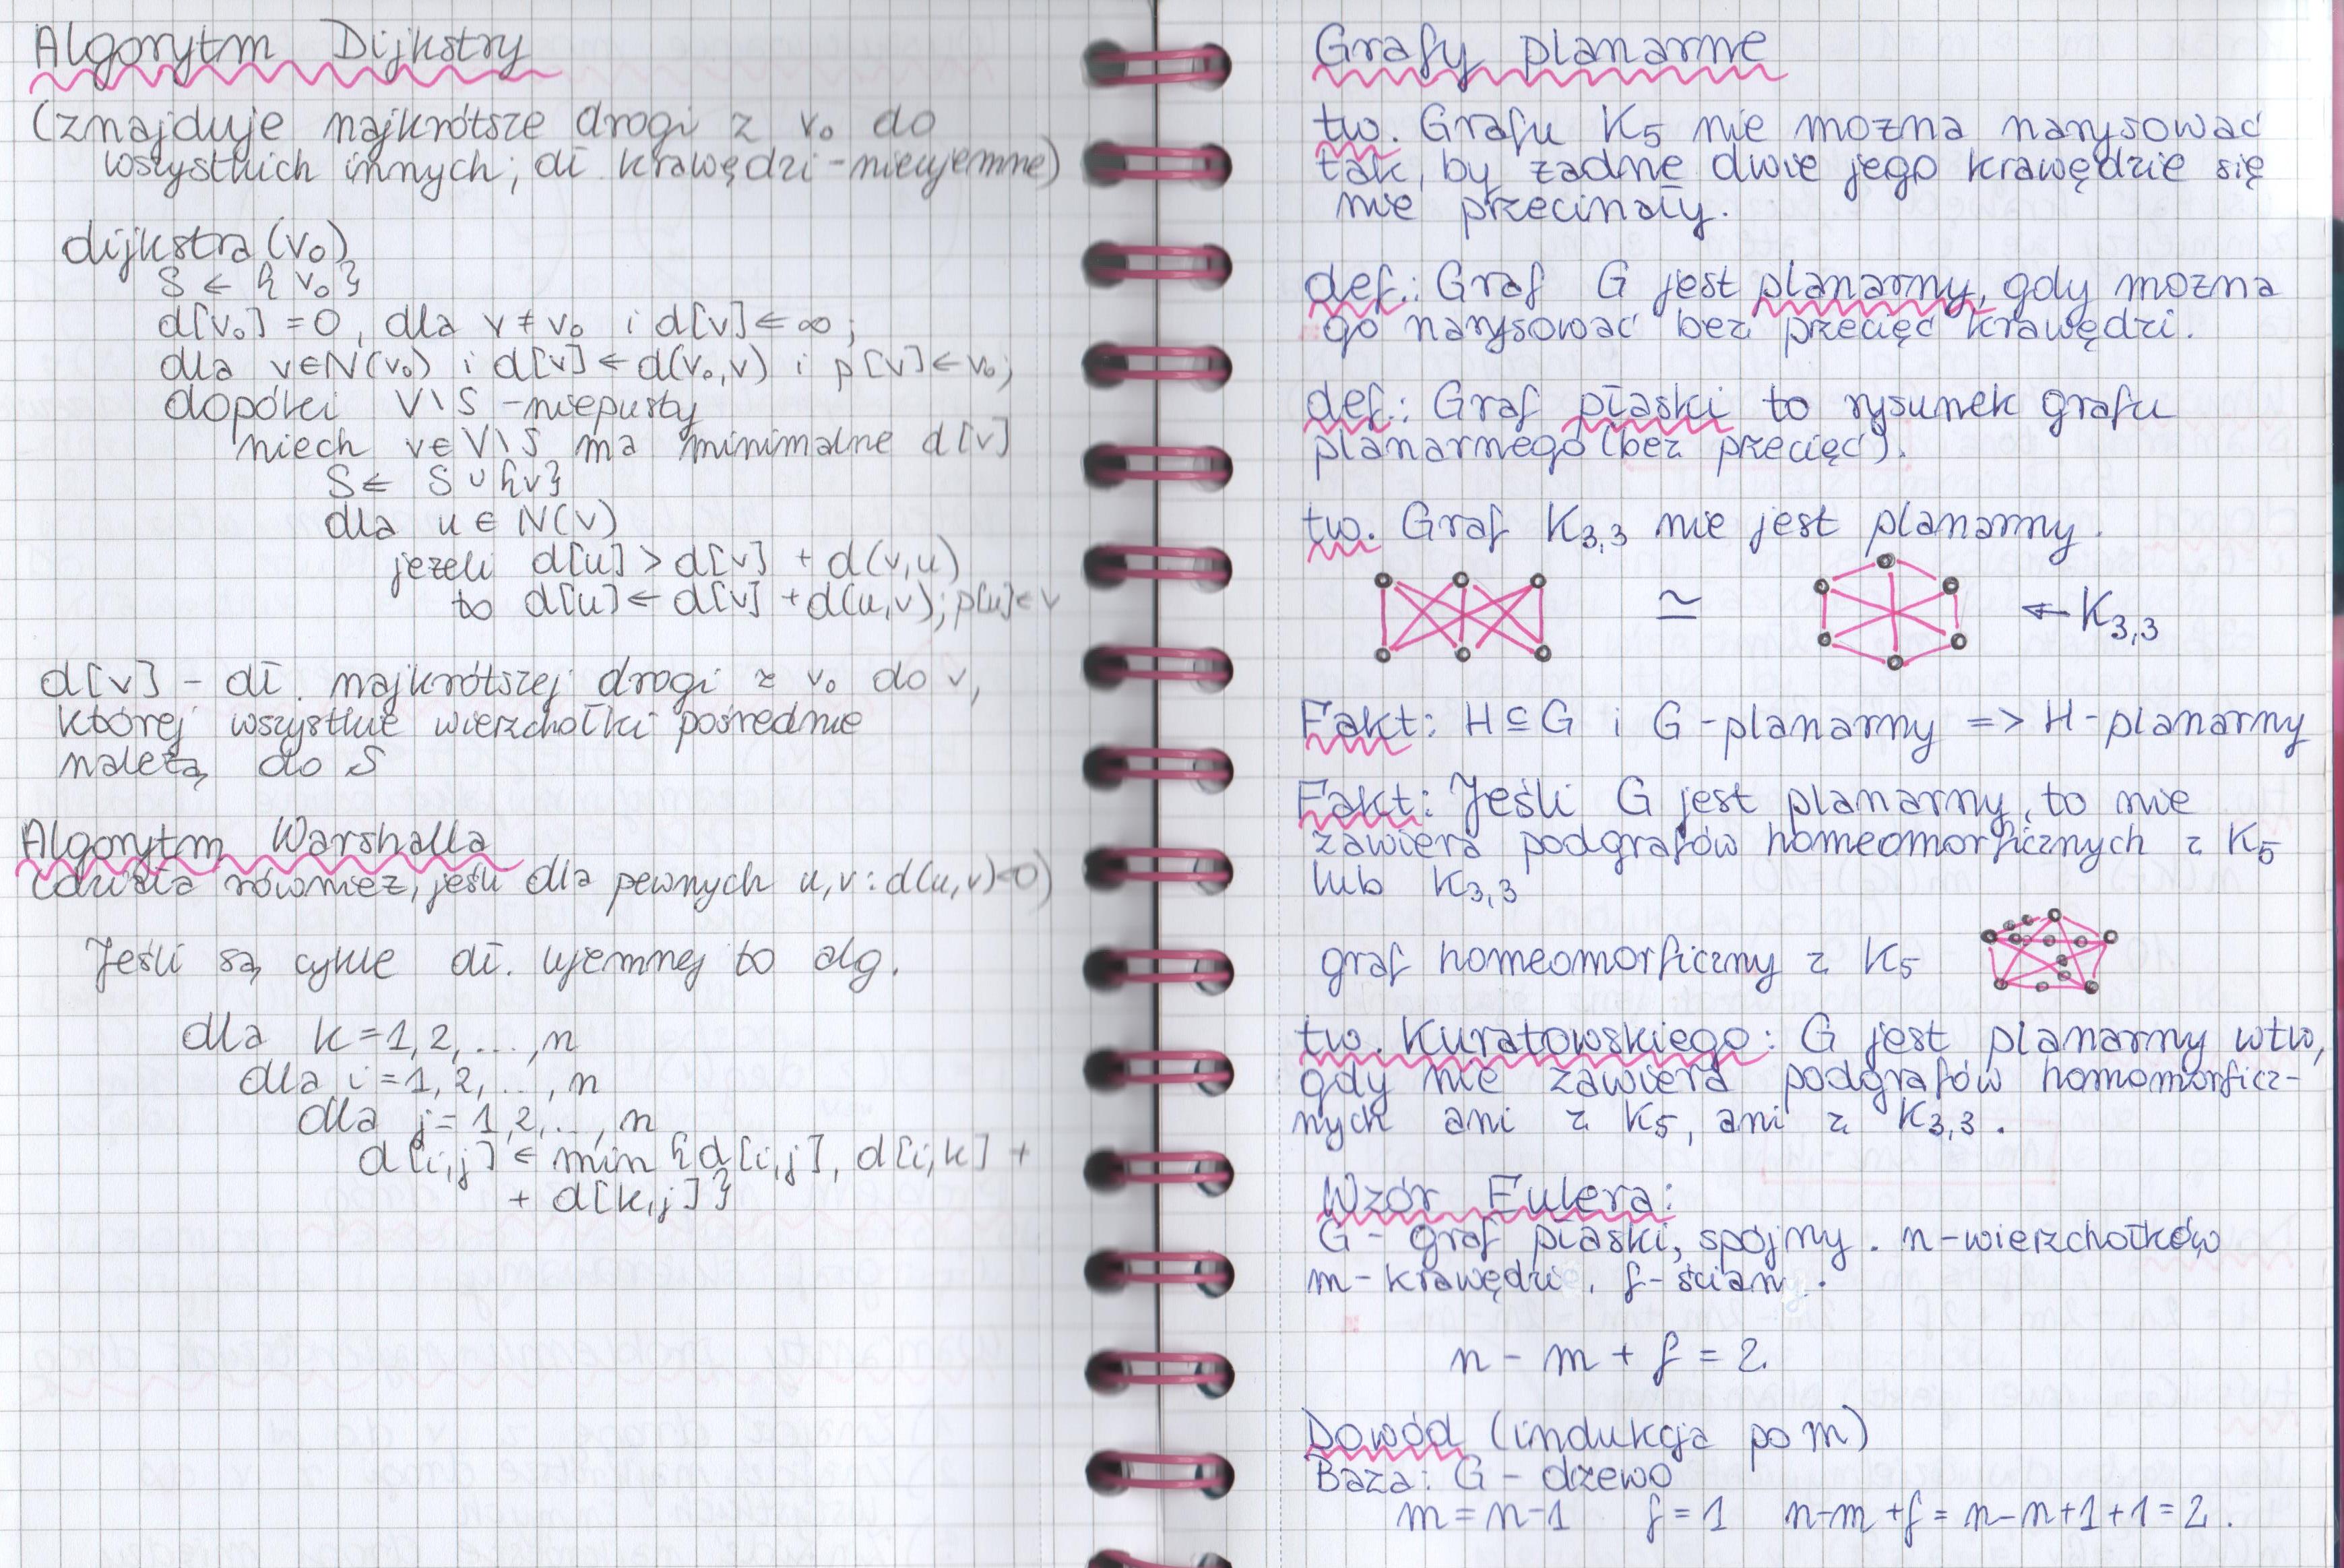 Algorytm Dijkstry
(znajduje najkrótsze drogi z v₀ do
wszystkich innych; dł. krawędzi - nieujemne)
dijkstra(v₀)
S ← {v₀}
d[v₀]=0, dla v≠v₀ i d[v]←∞;
dla v∈N(v₀) i d[v]←d(v₀,v) i p[v]←v₀;
dopóki V\S - niepusty
niech v∈V\S ma minimalne d[v]
S← S∪{v}
dla u∈N(v)
jeżeli d[u]>d[v] + d(v,u)
to d[u]←d[v]+d(u,v); p[u]←v
d[v] - dł. najkrótszej drogi z v₀ do v,
której wszystkie wierzchołki pośrednie
należą do S
Algorytm Warshalla
(działa również, jeśli dla pewnych u,v: d(u,v)<0)
Jeśli są cykle dł. ujemnej to alg.
dla k=1,2,...,n
dla i=1,2,...,n
dla j=1,2,...,n
d[i,j] ← min {d[i,j], d[i,k] +
+ d[k,j]}
Grafy planarne
tw. Grafu K₅ nie można narysować
tak, by żadne dwie jego krawędzie się
nie przecinały.
def.: Graf G jest planarny, gdy można
go narysować bez przecięć krawędzi.
def.: Graf płaski to rysunek grafu
planarnego (bez przecięć).
tw. Graf K₃,₃ nie jest planarny.
≃ ← K₃,₃
Fakt: H⊆G i G-planarny => H-planarny
Fakt: Jeśli G jest planarny, to nie
zawiera podgrafów homeomorficznych z K₅
lub K₃,₃
graf homeomorficzny z K₅
tw. Kuratowskiego: G jest planarny wtw,
gdy nie zawiera podgrafów homomorficz-
nych ani z K₅, ani z K₃,₃.
Wzór Eulera:
G - graf płaski, spójny. n-wierzchołków
m-krawędzi, f-ścian.
n - m + f = 2
Dowód (indukcja po m)
Baza: G - drzewo
m = n-1 f = 1 n-m+f = n-n+1+1=2.